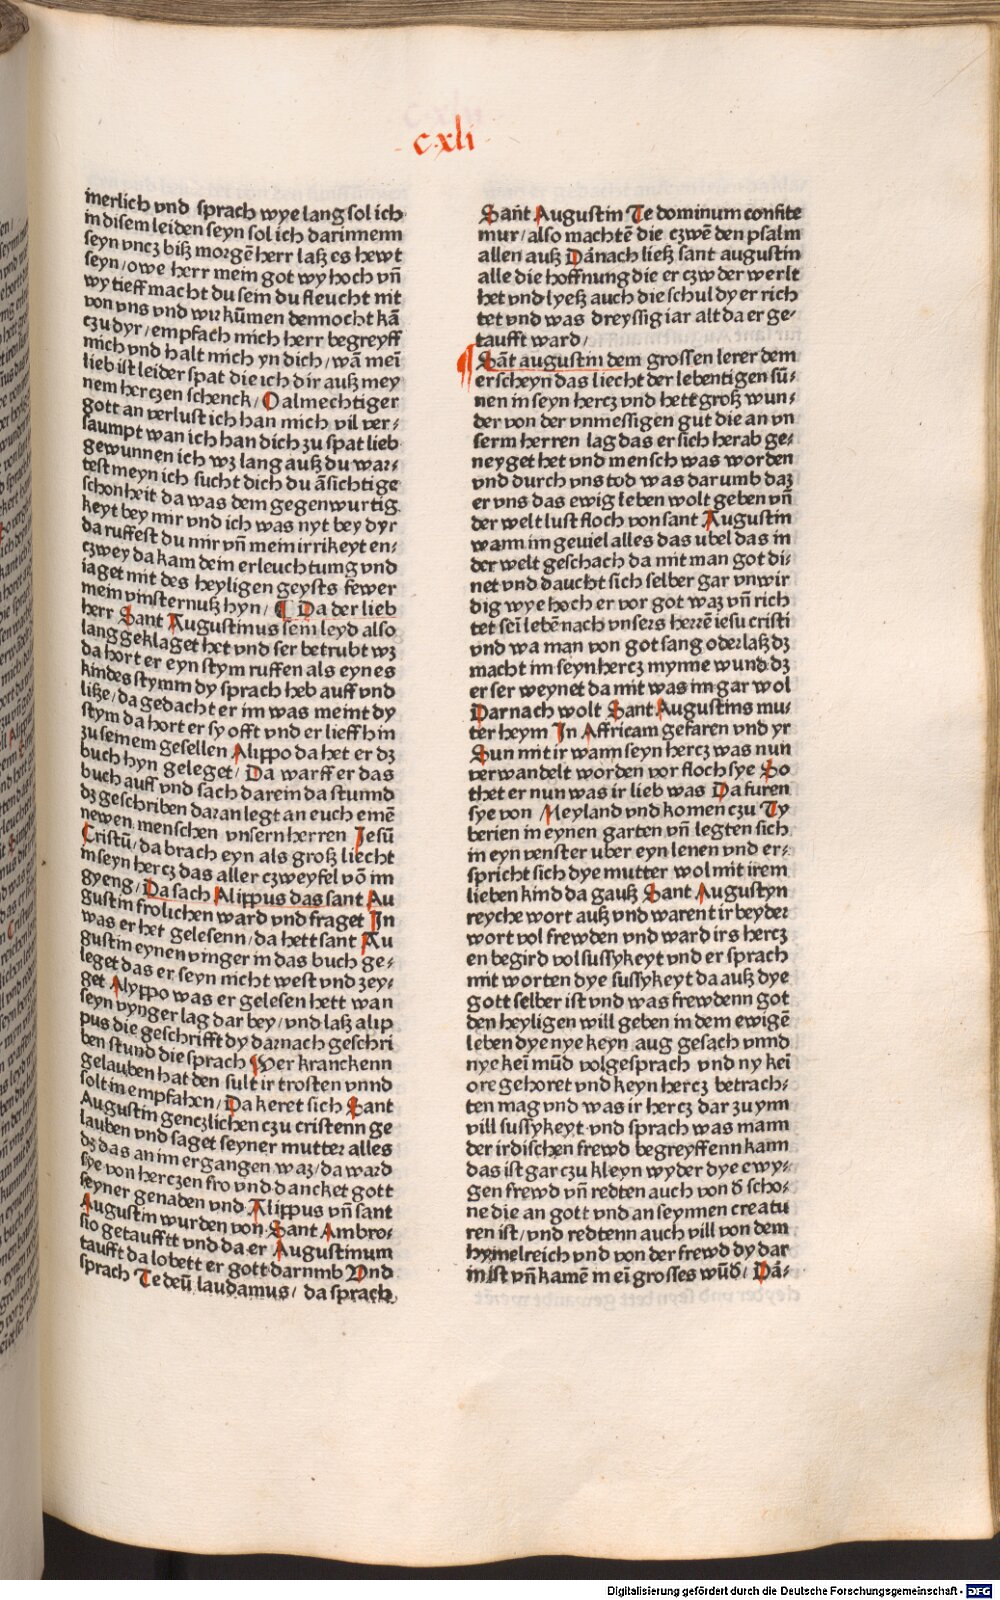 c·xli
inerlich vnd sprach wye lang sol ich
in disem leiden seyn sol ich darinnenn
seyn vncz biß morgē herr laß es hewt
seyn/owe herr mein got wy hoch vñ
wy tieff macht du sein du fleucht nit
von vns vnd wir kūmen dennocht kā
czu dyr/empfach mich herr begreyff
mich vnd halt mich yn dich/wā meī
lieb ist leider spat die ich dir auß mey
nem herczen schenck/O almechtiger
gott an verlust ich han mich vil ver⸗
saumpt wan ich han dich zu spat lieb
gewunnen ich wz lang auß du war⸗
test meyn ich sucht dich du āsichtige
schonheit da was dem gegenwurtig
keyt bey mir vnd ich was nyt bey dyr
da ruffest du mir vñ mein irrikeyt en⸗
czwey da kam dem erleuchtung vnd
iaget mit des heyligen geysts fewer
mein vinsternuß hyn/ ¶ Da der lieb
herr Sant Augustinus sein leyd also
lang geklaget het vnd ser betrubt wz
da hort er eyn stym ruffen als eynes
kindes stymm dy sprach heb auff vnd
liße/da gedacht er im was meint dy
stym da hort er sy offt vnd er lieff hin
zu seinem gesellen Alippo da het er dz
buch hyn geleget/Da warff er das
buch auff vnd sach darein da stunnd
dz geschriben daran legt an euch emē
newen menschen vnsern herren Jesū
Cristū/da brach eyn als groß liecht
in seyn hercz das aller czweyfel vō im
gyeng/Da sach Alippus das sant Au
gustin frolichen ward vnd fraget In
was er het gelesenn/da hett sant Au
gustin eynen vinger in das buch ge⸗
leget das er seyn nicht west vnd zey⸗
get Alyppo was er gelesen hett wan
seyn vynger lag dar bey/vnd laß alip
pus die geschrifft dy darnach geschri
ben stund die sprach Wer kranckenn
gelauben hat den sult ir trosten vnnd
solt in empfahen/Da keret sich Sant
Augustin genczlichen czu cristenn ge
lauben vnd saget seyner mutter alles
dz das an im ergangen waz/da ward
sye von herczen fro vnd dancket gott
seyner genaden vnd Alippus vñ sant
Augustin wurden von Sant Ambro⸗
sio getaufftt vnd da er Augustinum
taufft da lobett er gott darumb Vnd
sprach Te deū laudamus/ da sprach
Sant Augustin Te dominum confite
mur/also machtē die czwē den psalm
allen auß Dānach ließ sant augustin
alle die hoffnung die er czw der werlt
het vnd lyeß auch die schul dy er rich
tet vnd was dreyssig iar alt da er ge⸗
taufft ward/
¶ Sāt augustin dem grossen lerer dem
erscheyn das liecht der lebentigen sū⸗
nen in seyn hercz vnd hett groß wun⸗
der von der vnmessigen gut die an vn
serm herren lag das er sich herab ge⸗
neyget het vnd mensch was worden
vnd durch vns tod was darumb daz
er vns das ewig leben wolt geben vñ
der welt lust floch von sant Augustin
wann im geviel alles das ubel das in
der welt geschach da mit man got di⸗
net vnd daucht sich selber gar vnwir
dig wye hoch er vor got waz vñ rich
tet seī lebē nach vnsers herrē iesu cristi
vnd wa man von got sang oder laß dz
macht im seyn hercz mynne wund dz
er ser weynet da mit was im gar wol
Darnach wolt Sant Augustins mu⸗
ter heym In Affricam gefaren vnd yr
Sun mit ir wann seyn hercz was nun
verwandelt worden vor floch sye So
thet er nun was ir lieb was Da furen
sye von Meyland vnd komen czu Ty
berien in eynen garten vñ legten sich
in eyn venster uber eyn lenen vnd er⸗
spricht sich dye mutter wol mit irem
lieben kind da gauß Sant Augustyn
reyche wort auß vnd warent ir beyder
wort vol frewden vnd ward irs hercz
en begird vol sussykeyt vnd er sprach
mit worten dye sussykeyt da auß dye
gott selber ist vnd was frewdenn got
den heyligen will geben in dem ewigē
leben dye nye keyn aug gesach vnnd
nye keī mūd volgesprach vnd ny keī
ore gehoret vnd keyn hercz betrach⸗
ten mag vnd was ir hercz dar zu ynn
vill sussykeyt vnd sprach was mann
der irdischen frewd begreyffenn kann
das ist gar czu kleyn wyder dye ewy⸗
gen frewd vñ redten auch von d̄ scho⸗
ne die an gott vnd an seynnen creatu
ren ist/vnd redtenn auch vill von dem
hymelreich vnd von der frewd dy dar
in ist vñ kamē in eī grosses wūd̄/Dā⸗
Digitalisierung gefördert durch die Deutsche Forschungsgemeinschaft - DFG